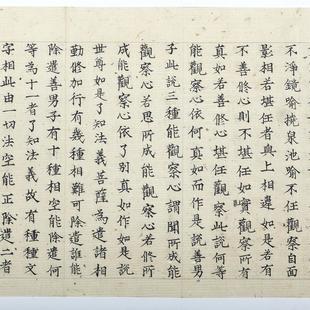 不淨鏡喻撓泉池喻不任觀察自面
影相若堪任者與上相違如是若有
不善修心則不堪任如實觀察所有
真如若善修心堪任觀察此說何等
能觀察心依何真如而作是說善男
子此說三種能觀察心謂聞所成能
觀察心若思所成能觀察心若修所
成能觀察心依了別真如作如是說
世尊如是了知法義菩薩為遣諸相
勤修加行有幾種相難可除遣誰能
除遣善男子有十種相空能除遣何
等為十一者了知法義故有種種文
字相此由一切法空能正除遣二者